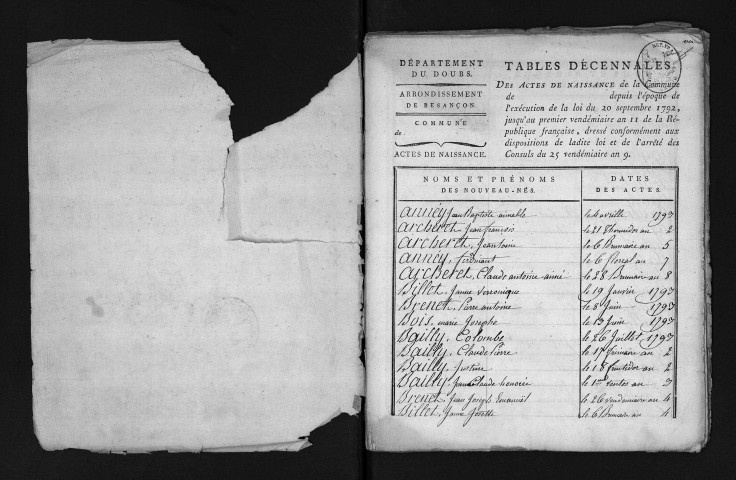 DÉPARTEMENT
DU DOUBS.
ARRONDISSEMENT
DE BESANÇON.
COMMUNE
de
ACTES DE NAISSANCE.
TABLES DÉCENNALES
DES ACTES DE NAISSANCE de la Commune
de depuis l'époque de
l'exécution de la loi du 20 septembre 1792,
jusqu'au premier vendémiaire an 11 de la Ré-
publique française, dressé conformément aux
dispositions de ladite loi et de l'arrêté des
Consuls du 25 vendémiaire an 9.
NOMS ET PRÉNOMS
DES NOUVEAU-NÉS.
DATES
DES ACTES.
anney, Jean Baptiste aimable le 4 avrille 1793
archeret Jean françois le 21 Thermidor an 2
archeret, Jeantoine le 6 Brumaire an 5
anney, ferdinant le 6 floreal an 7
archeret, Claude antoine aimé le 28 Brumair an 8
Billet, Janne verronique le 19 Janvier 1793
Brenet, Pierre antoine le 8 Juin 1793
Bois, marie Josephe le 13 Juin 1793
Bailly, Colombe le 26 Juillet 1793
Bailly, Claude Pierre le 17 frimaire an 2
Bailly Justine le 18 fructidor an 2
Bailly, Janne Claude honorée le 1er ventos an 3
Brenet, Jean Joseph Emanuel le 26 vendemiaire an 4
Billet, Janne Josette le 6 Brumaire an 4